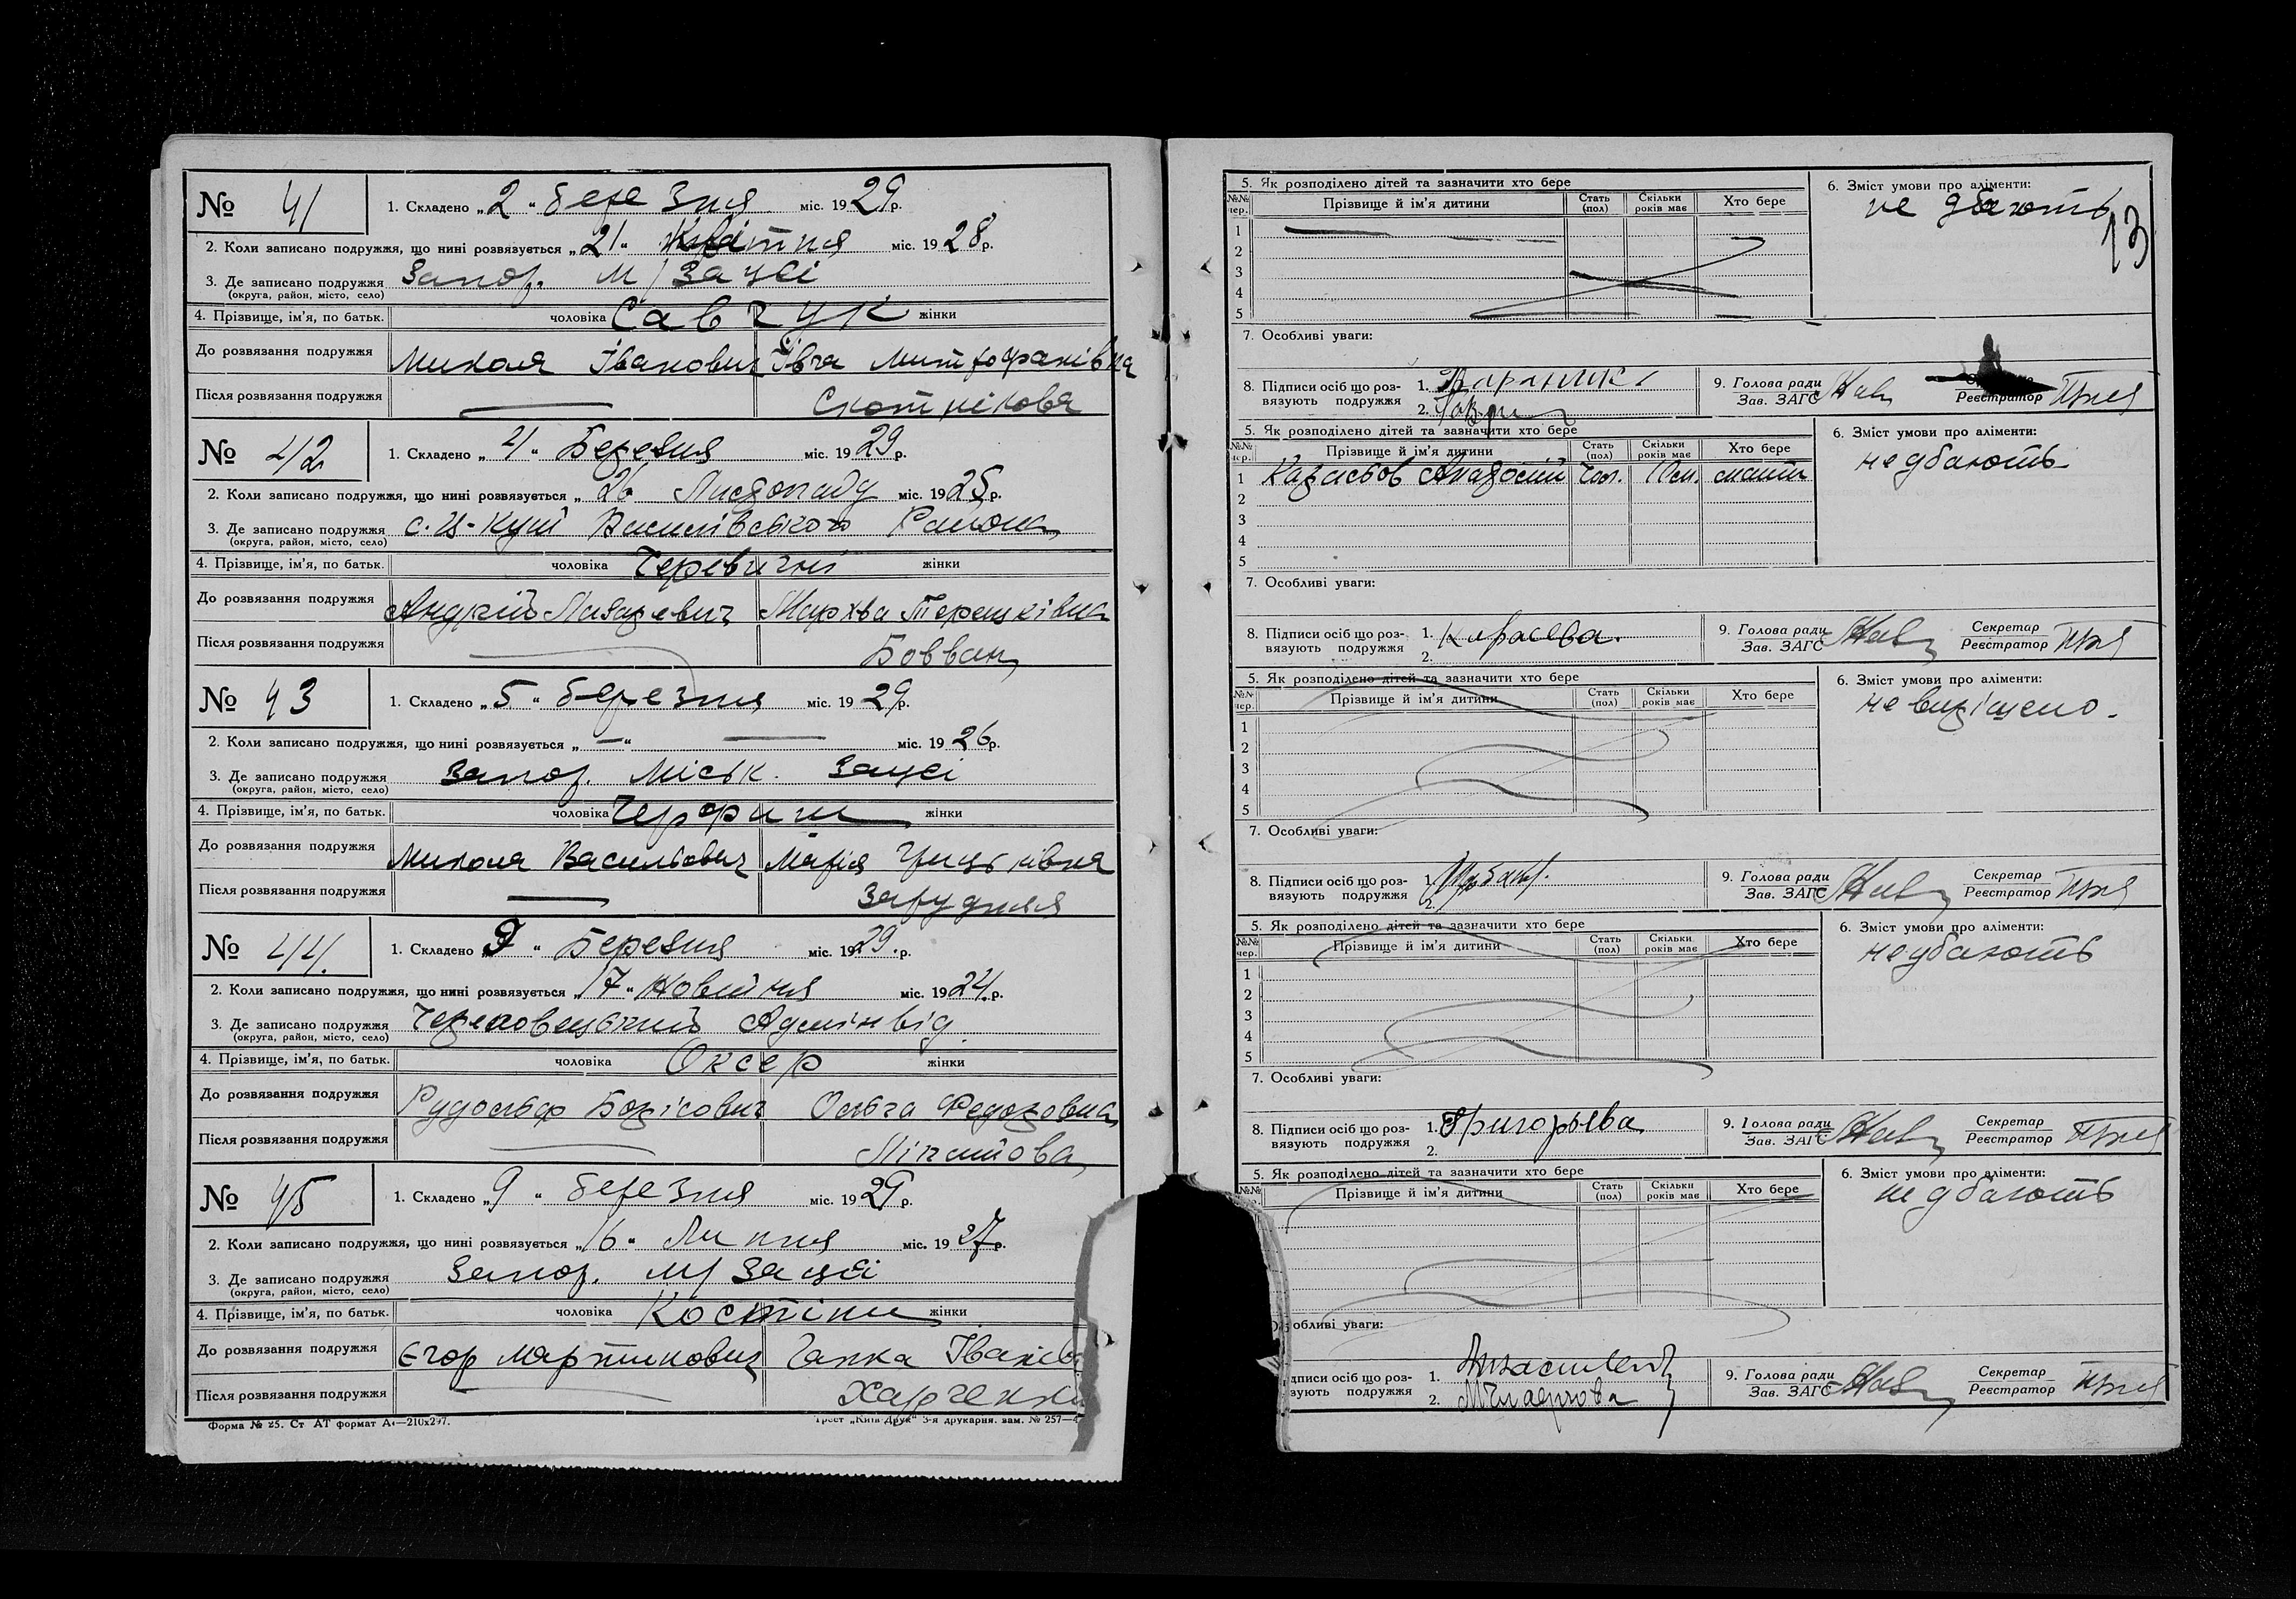 № 41
1. Складено „2“ березня міс. 1929р.
2. Коли записано подружжя, що нині розвязується „21“ Квітня міс. 1928р.
3. Де записано подружжя Запор. м/Загсі
(округа, район, місто, село)
4. Прізвище, ім'я, по батьк. чоловіка Савчук жінки
До розвязання подружжя Микола Іванович Івга Митрофанівна
Після розвязання подружжя — Скотнікова
№ 42
1. Складено „4“ Березня міс. 1929р.
2. Коли записано подружжя, що нині розвязується „26 Листопаду міс. 1925р.
3. Де записано подружжя Василівського Району
(округа, район, місто, село)
4. Прізвище, ім'я, по батьк. чоловіка Черевичні жінки
До розвязання подружжя Андрій Лазаревич Мархва
Після розвязання подружжя — Бовван
№ 43
1. Складено „5“ березня міс. 1929р.
2. Коли записано подружжя, що нині розвязується „—“ — міс. 1926р.
3. Де записано подружжя Запор. Міськ. Загсі
(округа, район, місто, село)
4. Прізвище, ім'я, по батьк. чоловіка жінки
До розвязання подружжя Микола Васильович Марія
Після розвязання подружжя — Зарудня
№ 44.
1. Складено 9 “ Березня міс. 1929.р.
2. Коли записано подружжя, що нині розвязується „17“ Жовтня міс. 1924.р.
3. Де записано подружжя Адмінвід.
(округа, район, місто, село)
4. Прізвище, ім'я, по батьк. чоловіка Оксер жінки
До розвязання подружжя Рудольф Борісович Ольга Федоровна
Після розвязання подружжя —
№ 45
1. Складено „9“ березня міс. 1929р.
2. Коли записано подружжя, що нині розвязується „16“ Липня міс. 1927р.
3. Де записано подружжя Запор. м/Загсі
(округа, район, місто, село)
4. Прізвище, ім'я, по батьк. чоловіка Костіни жінки
До розвязання подружжя Єгор Мартинович Ганка
Після розвязання подружжя — Харченко
Форма № 25. Ст АТ формат А4—210х297.
Трест „Київ-Друк“ 3-я друкарня. зам. № 257—4
13
5. Як розподілено дітей та зазначити хто бере
6. Зміст умови про аліменти:
не дбають
№№ чер. Прізвище й ім'я дитини Стать (пол) Скільки років має Хто бере
1
2
3
4
5
7. Особливі уваги:
8. Підписи осіб що роз-
вязують подружжя
1.
2.
9. Голова ради
Зав. ЗАГС
Секретар
Реєстратор
5. Як розподілено дітей та зазначити хто бере
6. Зміст умови про аліменти:
не дбають
№№ чер. Прізвище й ім'я дитини Стать (пол) Скільки років має Хто бере
1 Чол. мати
2
3
4
5
7. Особливі уваги:
8. Підписи осіб що роз-
вязують подружжя
1. Карасева.
2.
9. Голова ради
Зав. ЗАГС
Секретар
Реєстратор
5. Як розподілено дітей та зазначити хто бере
6. Зміст умови про аліменти:
не вирішено.
№№ чер. Прізвище й ім'я дитини Стать (пол) Скільки років має Хто бере
1
2
3
4
5
7. Особливі уваги:
8. Підписи осіб що роз-
вязують подружжя
1.
2.
9. Голова ради
Зав. ЗАГС
Секретар
Реєстратор
5. Як розподілено дітей та зазначити хто бере
6. Зміст умови про аліменти:
не дбають
№№ чер. Прізвище й ім'я дитини Стать (пол) Скільки років має Хто бере
1
2
3
4
5
7. Особливі уваги:
8. Підписи осіб що роз-
вязують подружжя
1. Григорьева
2.
9. Голова ради
Зав. ЗАГС
Секретар
Реєстратор
5. Як розподілено дітей та зазначити хто бере
6. Зміст умови про аліменти:
не дбають
№№ Прізвище й ім'я дитини Стать (пол) Скільки років має Хто бере
обливі уваги:
дписи осіб що роз-
зують подружжя
1.
2.
9. Голова ради
Зав. ЗАГС
Секретар
Реєстратор